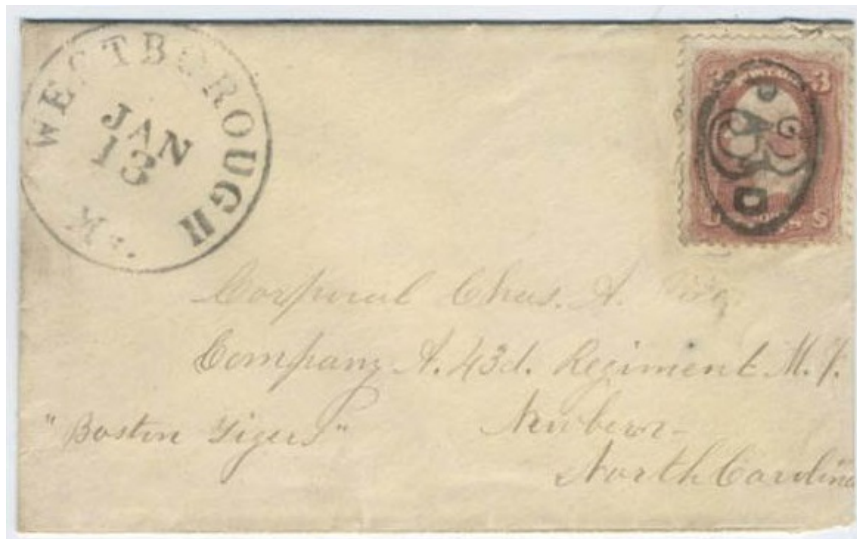 WESTBOROUGH
JAN
13
3 3
S
Corporal Chas. A.
Company A. 43d. Regiment M. V.
"Boston Tigers"
Newbern
North Carolina